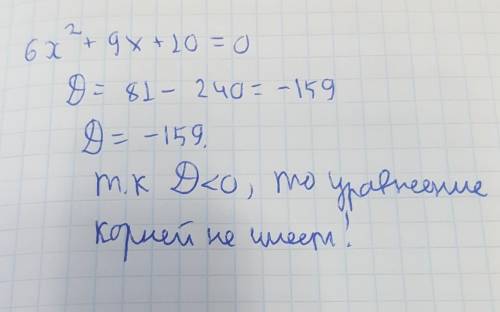 6x² + 9x + 10 = 0
D = 81 - 240 = -159
D = -159.
т.к D<0, то уравнение
корней не имеет!